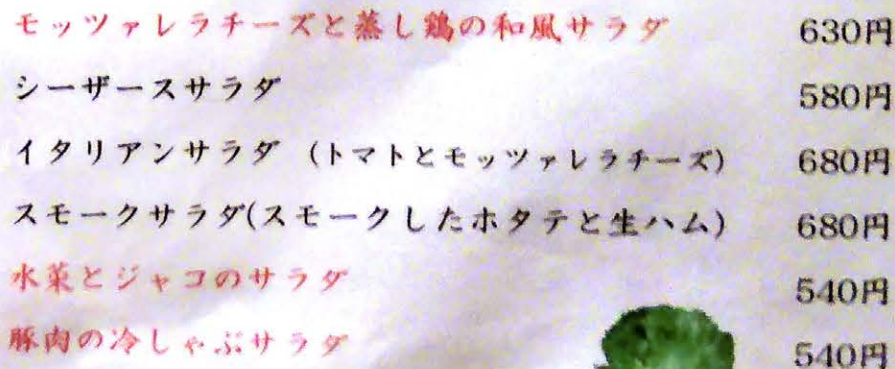 モッツァレラチーズと蒸し鶏の和風サラダ 630円
シーザースサラダ 580円
イタリアンサラダ (トマトとモッツァレラチーズ) 680円
スモークサラダ(スモークしたホタテと生ハム) 680円
水菜とジャコのサラダ 540円
豚肉の冷しゃぶサラダ 540円